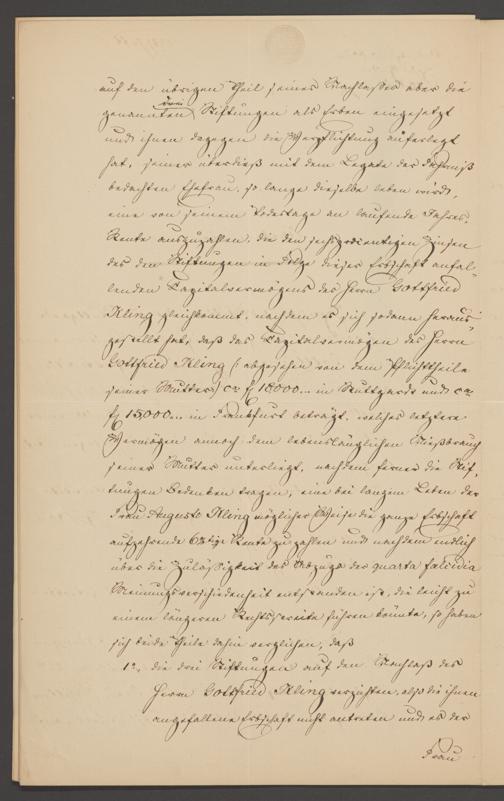 auf den übrigen Theil seines Nachlasses aber die
drei
genannten Stiftungen als Erben eingesetzt
und ihnen dagegen die Verpflichtung auferlegt
hat, seiner überdieß mit dem Legate der Fahrniß
bedachten Ehefrau, so lange dieselbe leben wird,
eine von seinem Todestage an laufende Jahres-
Rente auszuzahlen, die den sechsprocentigen Zinsen
des den Stiftungen in Folge dieser Erbschaft anfal-
lenden Capitalvermögens des Herrn Gottfried
Kling gleichkommt, nachdem es sich sodann heraus-
gestellt hat, daß das Capitalvermögen des Herrn
Gottfried Kling (abgesehen von dem Pflichttheile
seiner Mutter) ca f 18,000.. in Stuttgardt und ca
f 15,000... in Frankfurt beträgt, welches letztere
Vermögen annoch dem lebenslänglichen Nießbrauch
seiner Mutter unterliegt, nachdem ferner die Stif-
tungen Bedenken tragen, eine bei langem Leben der
Frau Auguste Kling möglicher Weise die ganze Erbschaft
aufzehrende 6%tige Rente zu zahlen und nachdem endlich
über die Zulässigkeit des Abzugs der quarta falcidia
Meinungsverschiedenheit entstanden ist, die leicht zu
einem längeren Rechtsstreite führen könnte, so haben
sich beide Theile dahin verglichen, daß
1o, die drei Stiftungen auf den Nachlaß des
Herrn Gottfried Kling verzichten, also die ihnen
angefallene Erbschaft nicht antreten und es der
Frau